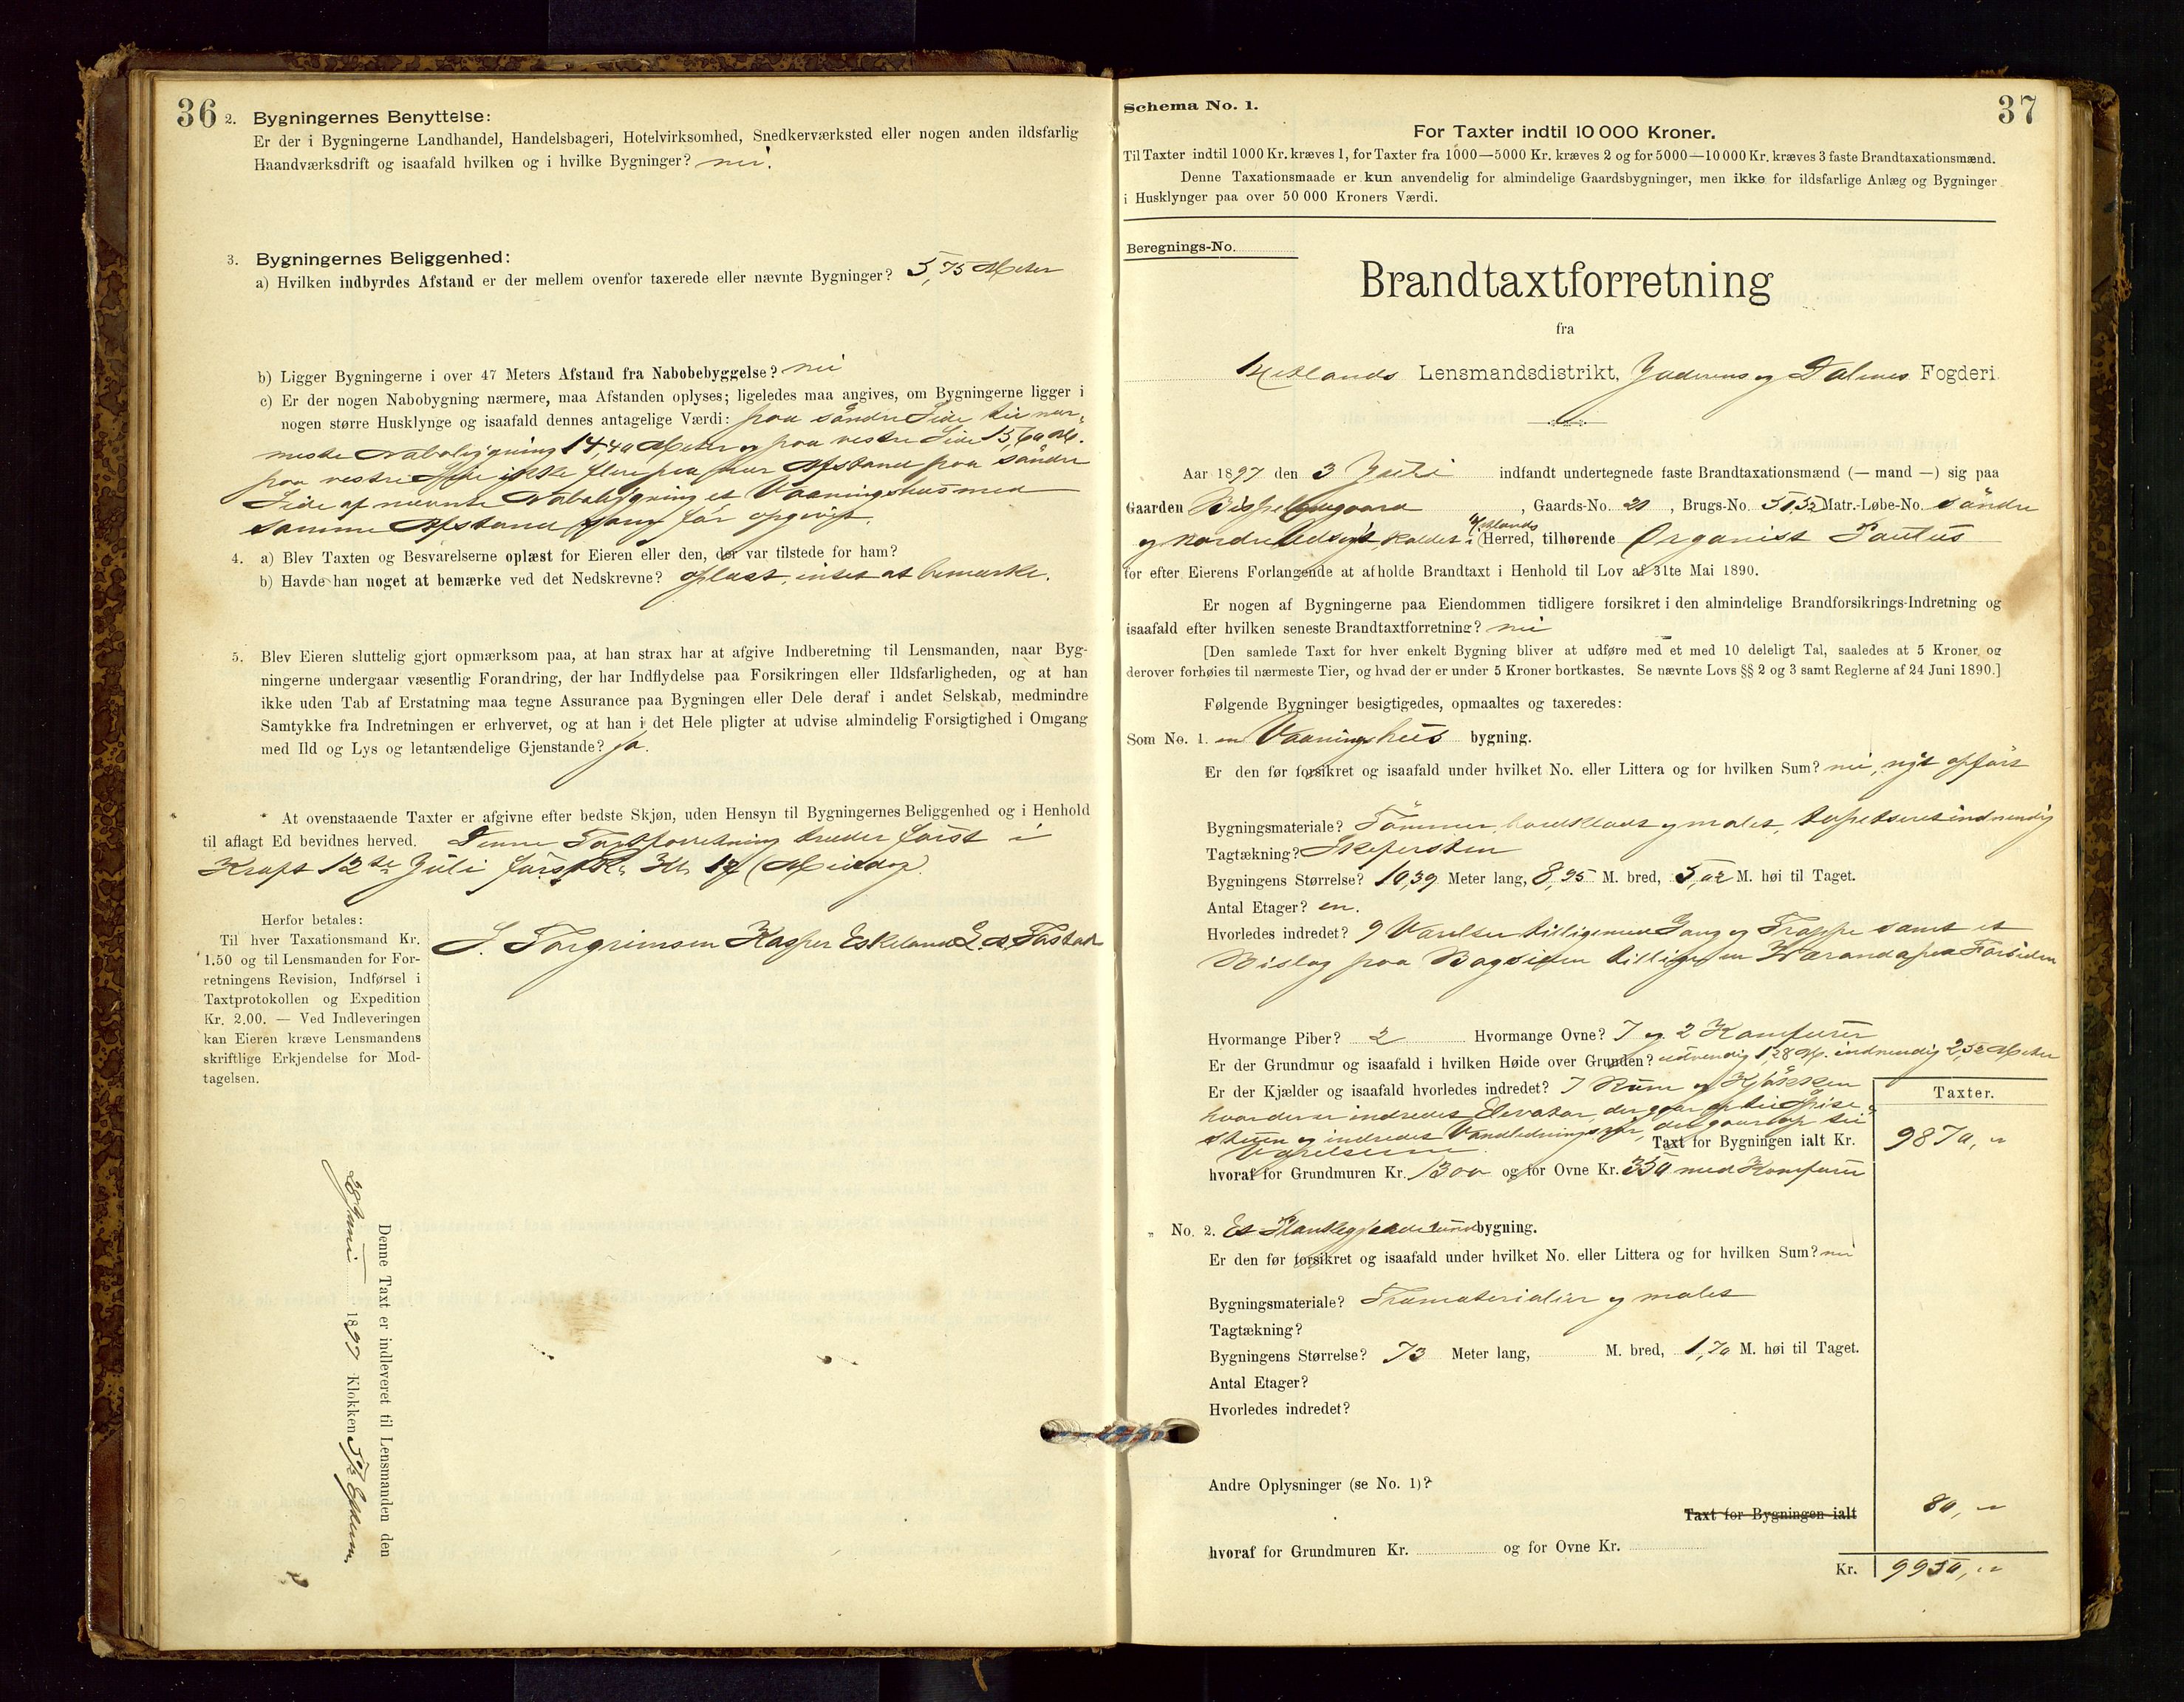 36
2. Bygningernes Benyttelse:
Er der i Bygningerne Landhandel, Handelsbageri, Hotelvirksomhed, Snedkerværksted eller nogen anden ildsfarlig
Haandværksdrift og isaafald hvilken og i hvilke Bygninger? nei.
3. Bygningernes Beliggenhed:
a) Hvilken indbyrdes Afstand er der mellem ovenfor taxerede eller nævnte Bygninger? 5,75 Meter
b) Ligger Bygningerne i over 47 Meters Afstand fra Nabobebyggelse? nei
c) Er der nogen Nabobygning nærmere, maa Afstanden oplyses; ligeledes maa angives, om Bygningerne ligger i
nogen større Husklynge og isaafald dennes antagelige Værdi: paa søndre Side til nær-
meste Nabobygning 14,40 Meter og paa vestre Side 15,60 M.
paa vestre Side ikke flere paa nær Afstand paa søndre
Side af nævnte Nabobygning et Vaaningshus med
samme Afstand som før opgivet.
4. a) Blev Taxten og Besvarelserne oplæst for Eieren eller den, der var tilstede for ham?
b) Havde han noget at bemærke ved det Nedskrevne? oplæst, intet at bemærke.
5. Blev Eieren sluttelig gjort opmærksom paa, at han strax har at afgive Indberetning til Lensmanden, naar Byg-
ningerne undergaar væsentlig Forandring, der har Indflydelse paa Forsikringen eller Ildsfarligheden, og at han
ikke uden Tab af Erstatning maa tegne Assurance paa Bygningen eller Dele deraf i andet Selskab, medmindre
Samtykke fra Indretningen er erhvervet, og at han i det Hele pligter at udvise almindelig Forsigtighed i Omgang
med Ild og Lys og letantændelige Gjenstande? ja.
At ovenstaaende Taxter er afgivne efter bedste Skjøn, uden Hensyn til Bygningernes Beliggenhed og i Henhold
til aflagt Ed bevidnes herved. Denne Taxtforretning træder først i
Kraft 12te Juli førstk. Kl. 12 (Middag).
Herfor betales:
Til hver Taxationsmand Kr.
1.50 og til Lensmanden for For-
retningens Revision, Indførsel i
Taxtprotokollen og Expedition
Kr. 2.00. — Ved Indleveringen
kan Eieren kræve Lensmandens
skriftlige Erkjendelse for Mod-
tagelsen.
S. Torgrimsen Kasper Eskeland
Denne Taxt er indleveret til Lensmanden den
1897 Klokken
37
Schema No. 1.
For Taxter indtil 10 000 Kroner.
Til Taxter indtil 1000 Kr. kræves 1, for Taxter fra 1000—5000 Kr. kræves 2 og for 5000—10000 Kr. kræves 3 faste Brandtaxationsmænd.
Denne Taxationsmaade er kun anvendelig for almindelige Gaardsbygninger, men ikke for ildsfarlige Anlæg og Bygninger
i Husklynger paa over 50 000 Kroners Værdi.
Beregnings-No.
Brandtaxtforretning
fra
Hetlands Lensmandsdistrikt, Jæderens og Dalernes Fogderi
Aar 1897 den 3 Juli indfandt undertegnede faste Brandtaxationsmænd (— mand —) sig paa
Gaarden, Gaards-No., Brugs-No. Matr.-Løbe-No. søndre
og nordre Udsigt kaldet i Hetlands Herred, tilhørende Organist Paulus
for efter Eierens Forlangende at afholde Brandtaxt i Henhold til Lov af 31te Mai 1890.
Er nogen af Bygningerne paa Eiendommen tidligere forsikret i den almindelige Brandforsikrings-Indretning og
isaafald efter hvilken seneste Brandtaxtforretning? nei
[Den samlede Taxt for hver enkelt Bygning bliver at udføre med et med 10 deleligt Tal, saaledes at 5 Kroner og
derover forhøies til nærmeste Tier, og hvad der er under 5 Kroner bortkastes. Se nævnte Lovs §§ 2 og 3 samt Reglerne af 24 Juni 1890.]
Følgende Bygninger besigtigedes, opmaaltes og taxeredes:
Som No. 1. en Vaaningshus bygning.
Er den før forsikret og isaafald under hvilket No. eller Littera og for hvilken Sum? nei, nyt opført
Bygningsmateriale? Tømmer, bordklædt og malet, tapetseret indvendig
Tagtækning? Skifersten
Bygningens Størrelse? 10,39 Meter lang, 8,95 M. bred, 5,02 M. høi til Taget.
Antal Etager? en.
Hvorledes indredet? 9 Værelser tilligemed Gang og Trappe samt et
Bislag paa Bagsiden tilligemed en Veranda paa Forsiden
Hvormange Piber? 2 Hvormange Ovne? 7 og 2 Komfurer
Er der Grundmur og isaafald i hvilken Høide over Grunden? udvendig 1,28 M. indvendig 2,52 Meter
Er der Kjælder og isaafald hvorledes indredet? 7 Rum og Kjøkken
hvor der er indredet Elevator, der gaar op til Spise-
stuen og indredet Vandledningsrør, der gaar op til
Værelserne.
Taxter.
Taxt for Bygningen ialt Kr. 9870,"
hvoraf for Grundmuren Kr. 1300 og for Ovne Kr. 350 med Komfurer
" No. 2. Et Plankegjærde bygning.
Er den før forsikret og isaafald under hvilket No. eller Littera og for hvilken Sum? nei
Bygningsmateriale? Træmaterialier og malet
Tagtækning?
Bygningens Størrelse? 73 Meter lang, M. bred, 1,70 M. høi til Taget.
Antal Etager?
Hvorledes indredet?
Andre Oplysninger (se No. 1)?
Taxt for Bygningen ialt 80,"
hvoraf for Grundmuren Kr. og for Ovne Kr.
Kr. 9950,"